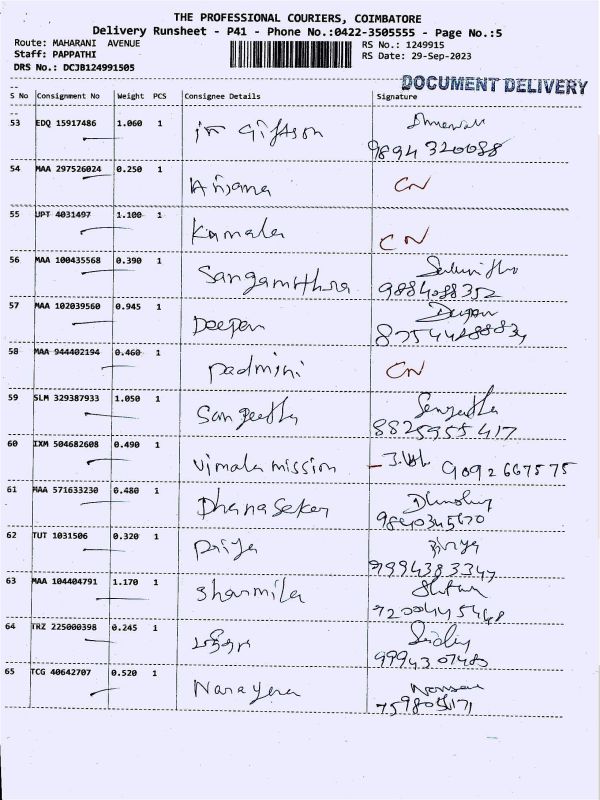 THE PROFESSIONAL COURIERS, COIMBATORE
Delivery Runsheet - P41 - Phone No.:0422-3505555 - Page No.:5
Route: MAHARANI AVENUE
RS No.: 1249915
Staff: PAPPATHI
RS Date: 29-Sep-2023
DRS No.: DCJB124991505
DOCUMENT DELIVERY
S No Consignment No Weight PCS Consignee Details Signature
53 EDQ 15917486 1.060 1
9894320088
54 MAA 297526024 0.250 1 Anjana CN
55 UPT 4031497 1.100 1 Kamala CN
56 MAA 100435568 0.390 1 Sangamithra
9884088352
57 MAA 102039560 0.945 1 Deepan Deepan
58 MAA 944402194 0.460 1 Padmini CN
59 SLM 329387933 1.050 1 Sangeetha Sangeetha
8825955417
60 IXM 504682608 0.490 1 Vimala mission 9092667575
61 MAA 571633230 0.480 1 Dhanaseker
9840345670
62 TUT 1031506 0.320 1 Priya Priya
9994383347
63 MAA 104404791 1.170 1 Sharmila
64 TRZ 225000398 0.245 1
65 TCG 40642707 0.520 1 Narayena